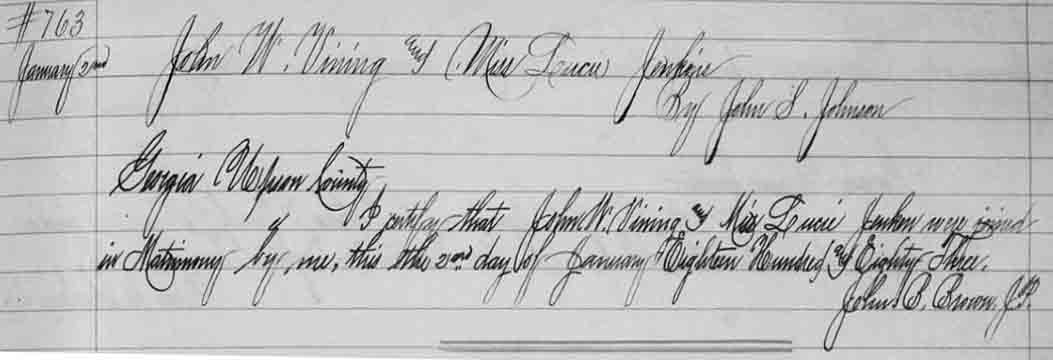 #763
January 2nd
John W. Vining and Miss Lucie Jenkins
By John S. Johnson
Georgia Upson County
I certify that John W. Vining and Miss Lucie Jenken were joined
in Matrimony by me, this the 2nd day of January Eighteen Hundred and Eighty Three.
John B. Brown, J.P.